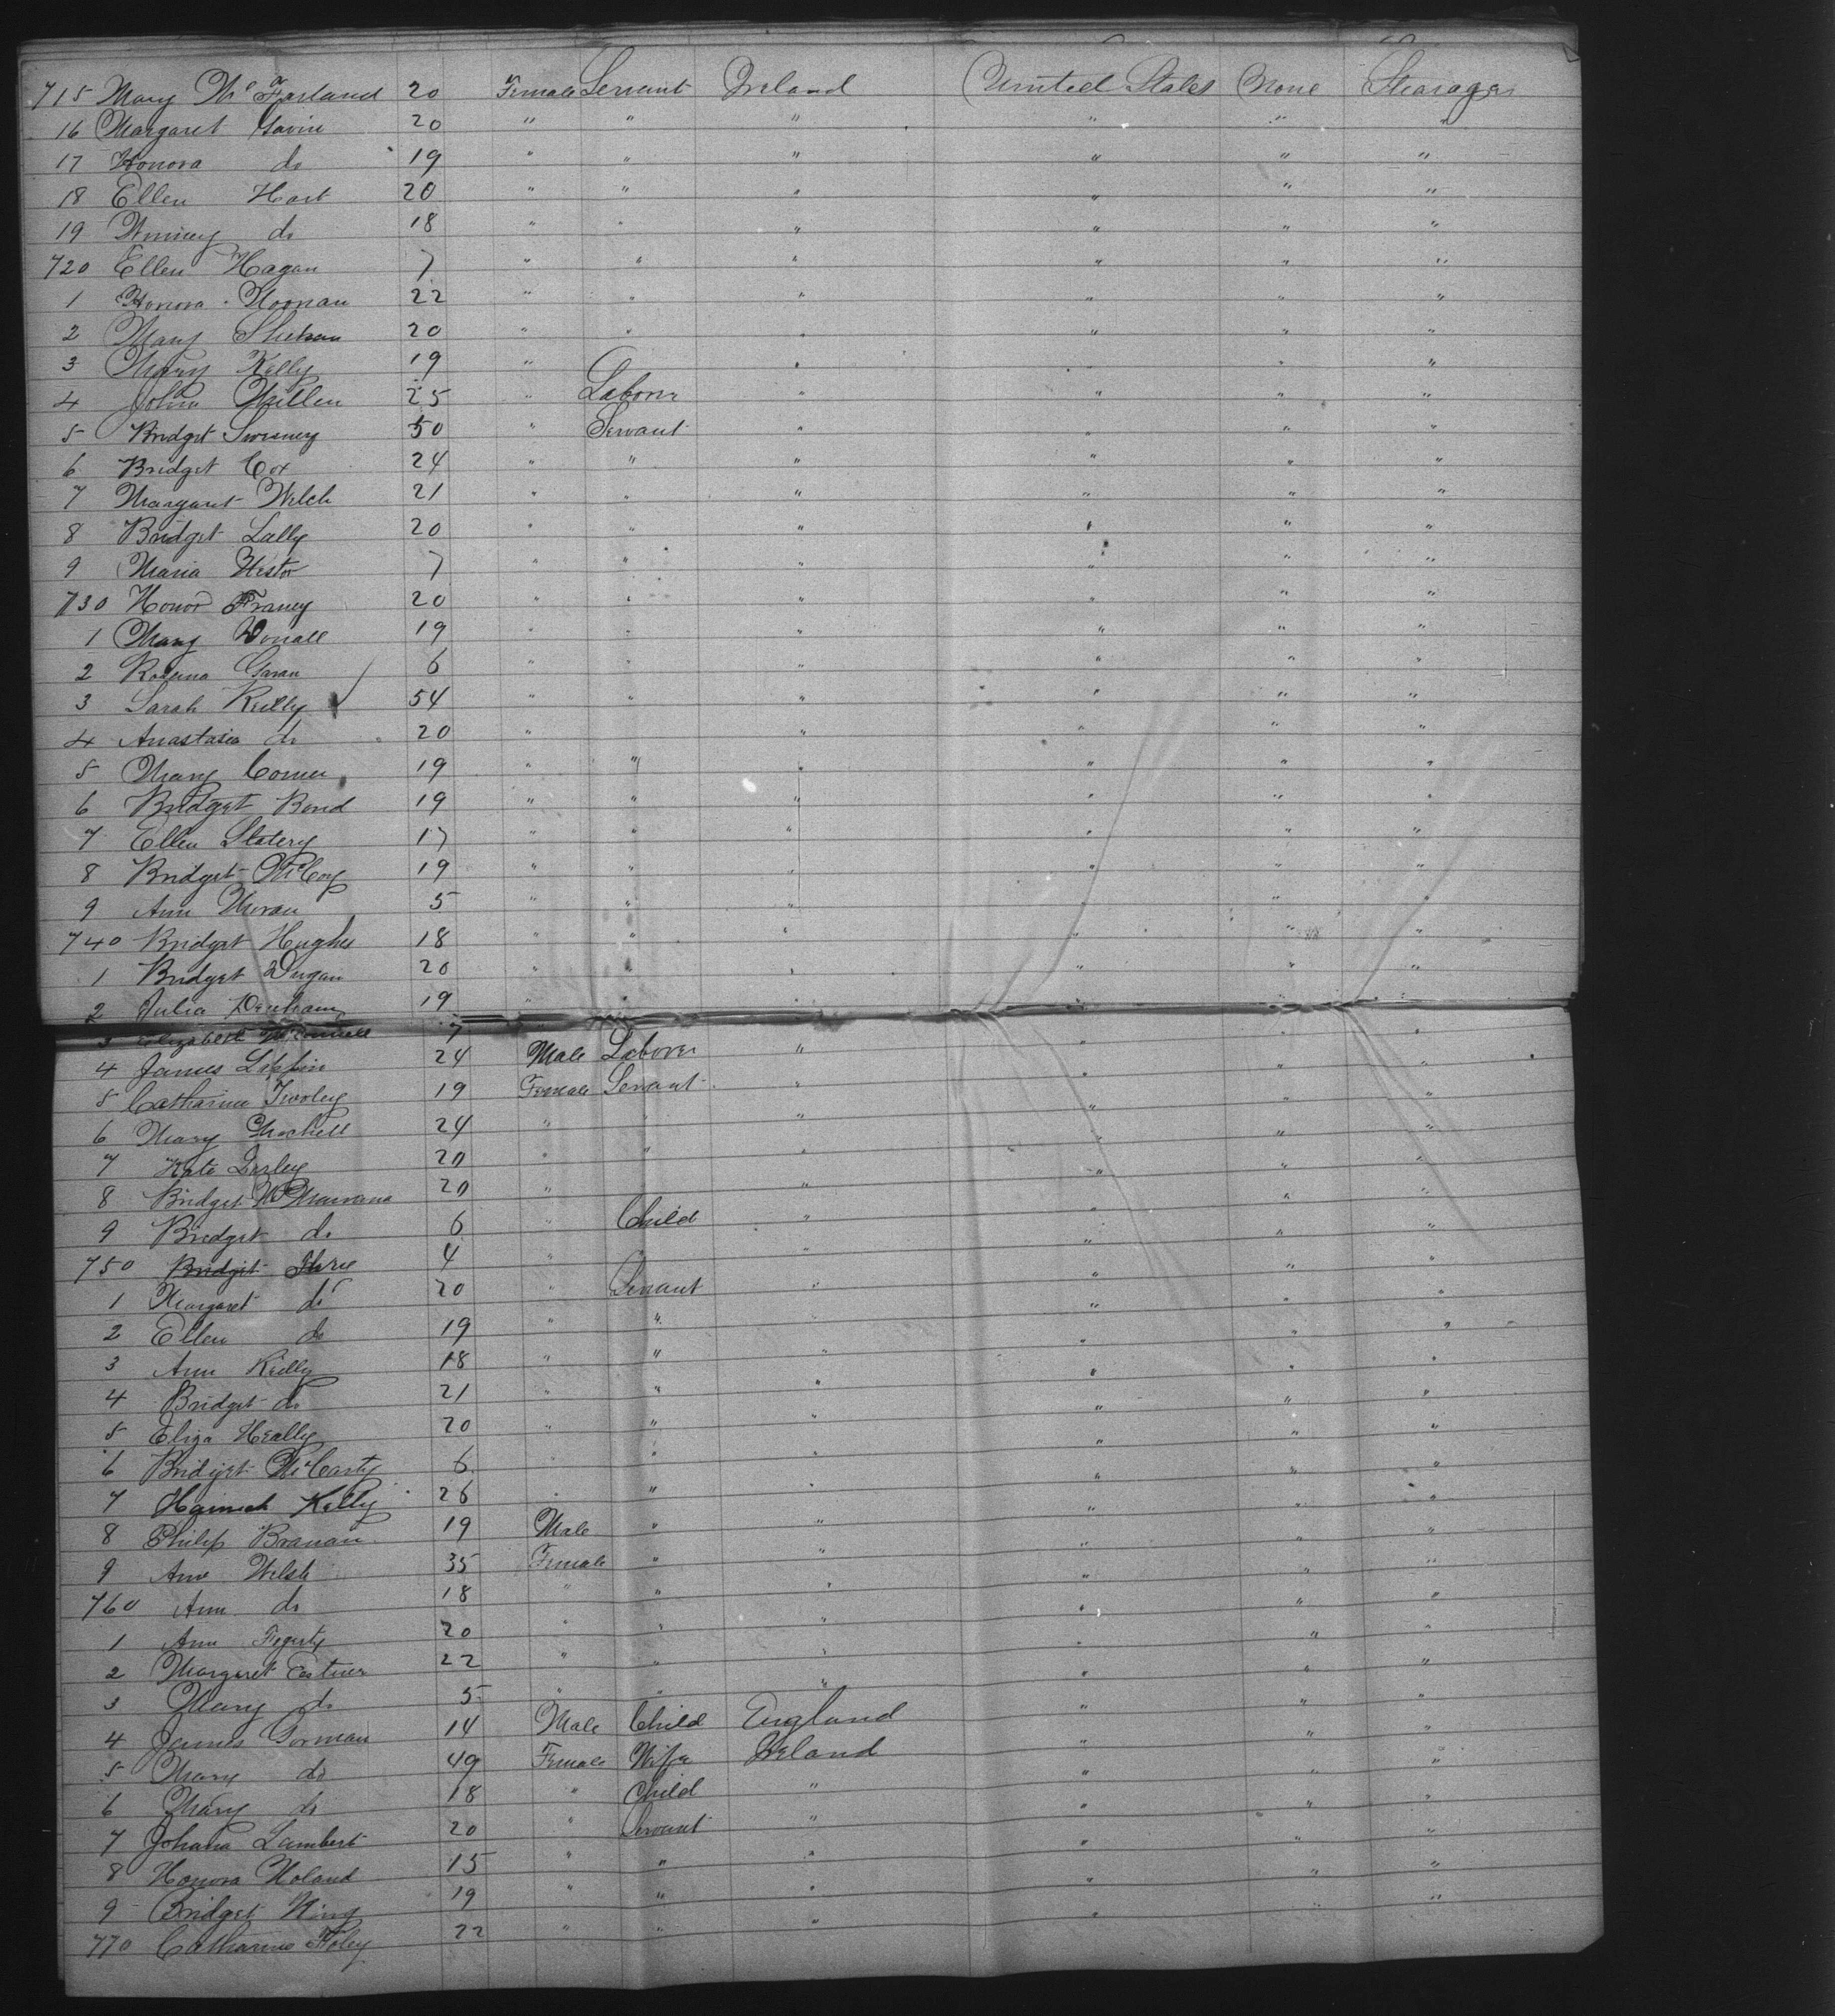 715 Mary McFarland 20 Female Servant Ireland United States None Stearage
16 Margaret Gavin 20 " " " " " "
17 Honora do 19 " " " " " "
18 Ellen Hart 20 " " " " " "
19 Winney do 18 " " " " " "
720 Ellen Hagan 7 " " " " " "
1 Honora Noonan 22 " " " " " "
2 Mary Sheehan 20 " " " " " "
3 Mary Kelly 19 " " " " "
4 John Millen 25 " Laborer " " " "
5 Bridget Sweeney 50 " Servant " " " "
6 Bridget Cox 24 " " " " " "
7 Margaret Welch 21 " " " " " "
8 Bridget Lally 20 " " " " " "
9 Maria Hestor 7 " " " " " "
730 Honor Franey 20 " " " " " "
1 Mary 19 " " " " " "
2 6 " " " " " "
3 Sarah Reilly 54 " " " " " "
4 Anastasia do 20 " " " " "
5 Mary 19 " " " " " "
6 Bridget Bond 19 " " " " " "
7 Ellen Slatery 17 " " " " " "
8 Bridget McCoy 19 " " " " " "
9 Ann Moran 5 " " " " " "
740 Bridget Hughes 18 " " " " " "
1 Bridget Dugan 20 " " " " " "
2 Julia Denham 19 " " " "
3 Elizabeth 7 " " "
4 James Lappin 24 Male Laborer " " " "
5 Catharine 19 Female Servant " " " "
6 Mary 24 " " " " " "
7 Kate 20 " " " " " "
8 Bridget 20 " " " " "
9 Bridget do 6 " Child " " " "
750 Bridget 4 " " " " " "
1 Margaret do 20 " Servant " " " "
2 Ellen do 19 " " " " " "
3 Ann Reilly 18 " " " " " "
4 Bridget do 21 " " " " " "
5 Eliza Heally 20 " " " " " "
6 Bridget McCarty 6 " " " " " "
7 Kelly 26 " " " " " "
8 Philip Branan 19 Male " " " " "
9 Ann Welsh 35 Female " " " " "
760 Ann do 18 " " " " " "
1 Ann Fegerty 20 " " " " " "
2 Margaret 22 " " " " " "
3 Mary do 5 " " " " " "
4 James Gorman 14 Male Child England " " "
5 Mary do 49 Female Wife Ireland " " "
6 Mary do 18 " Child " " " "
7 Johana Lambert 20 " Servant " " " "
8 Honora Holand 15 " " " " " "
9 Bridget King 19 " " " " " "
770 Catharine Foley 22 " " "